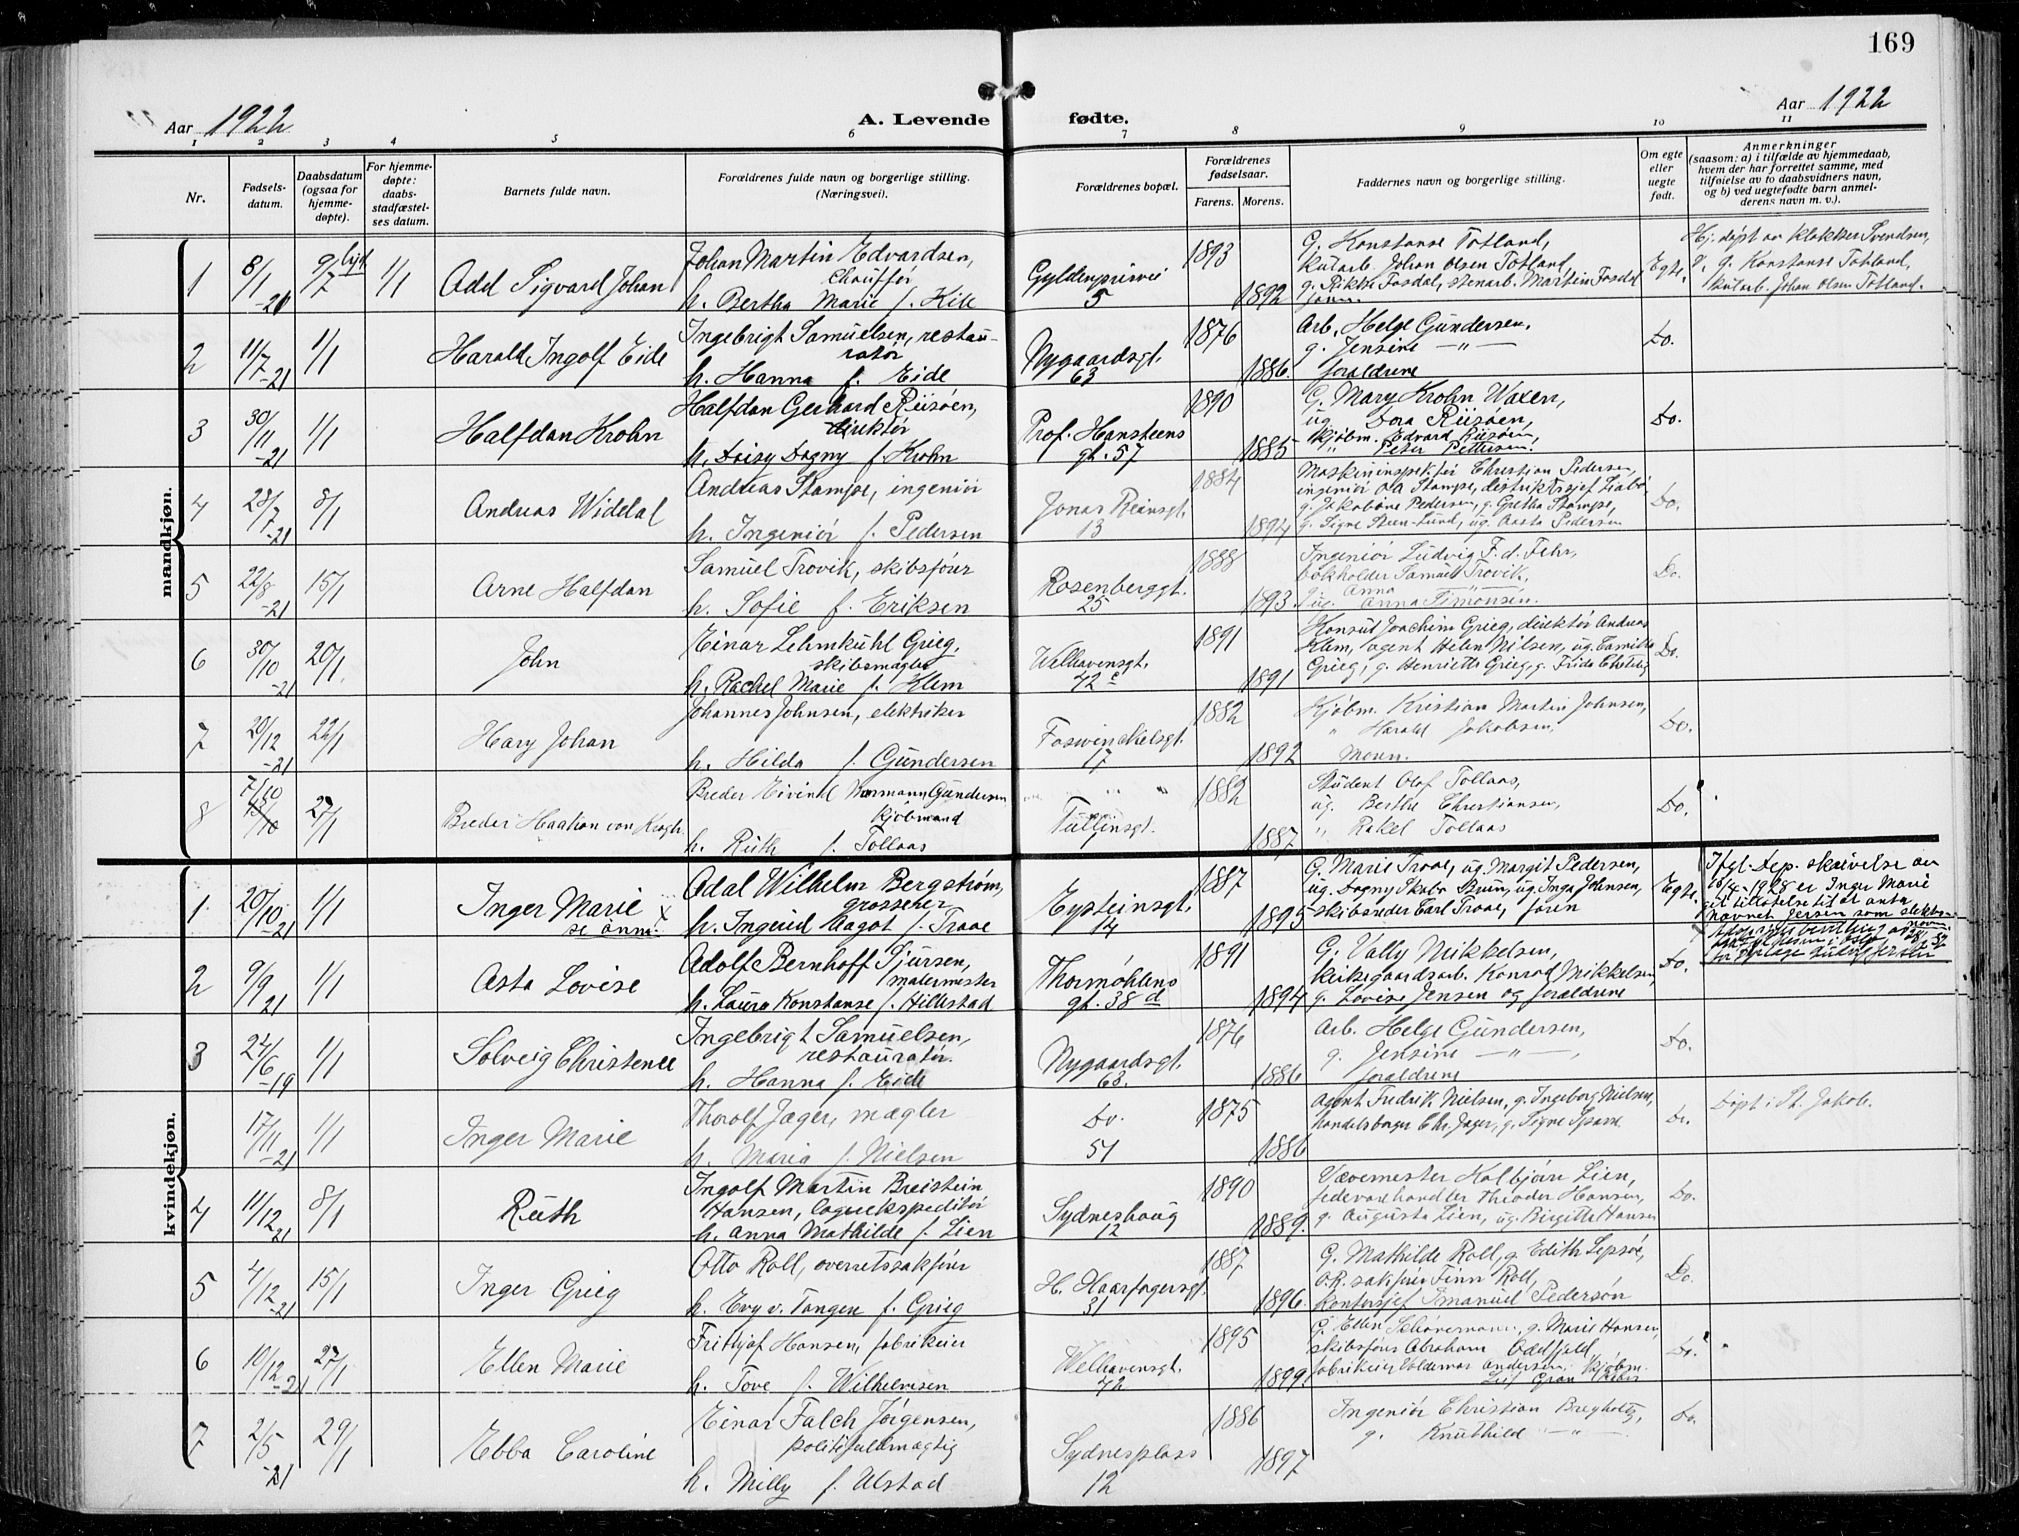 169
Aar 1922
A. Levende fødte.
Aar 1922
1 2 3 4 5 6 7 8 9 10 11
Nr.
Fødsels-
datum.
Daabsdatum
(ogsaa for
hjemme-
døpte).
For hjemme-
døpte:
daabs-
stadfæstel-
ses datum.
Barnets fulde navn.
Forældrenes fulde navn og borgerlige stilling.
(Næringsvei).
Forældrenes bopæl.
Forældrenes
fødselsaar.
Farens. Morens.
Faddernes navn og borgerlige stilling.
Om egte
eller
uegte
født.
Anmerkninger
(saasom: a) i tilfælde av hjemmedaab,
hvem der har forrettet samme, med
tilføielse av to daabsvidners navn,
og b) ved uegtefødte barn anmel-
derens navn m. v.).
mandkjøn.
1 8/1 -20 9/7 1/1 Sigvard Johan
Johan Martin Edvardsen,
chauffør
h. Bertha Marie f.
Gyldenprisvei
5
1893 1892
G. Konstanse Totland,
Johan Olsen Totland
g. Rikke Fosdal, stenarb. Martin Fosdal
Egte.
Hj. døpt av klokker Svendsen,
g. Konstanse Totland,
Johan Olsen Totland.
2 11/7 -21 1/1 Harald Ingolf Eide
Ingebrigt Samuelsen, restau-
ratør
h. Hanna f. Eide
Nygaardsgt.
63
1876 1886.
Arb. Helge Gundersen,
g. Jensine —"—
forældrene
Do.
3 30/11 -21 1/1 Halfdan Krohn
Halfdan Gerhard Riisøen,
direktør
h. Daisy Dagny f. Krohn
Prof. Hansteens
gt. 57
1890 1885
G. Mary Krohn Waxen,
ug Dora Riisøen,
kjøbm. Edvard Riisøen,
" Peter Pettersen.
Do.
4 28/7 -21 8/1 Andreas Widdal
Andreas Stampe, ingeniør
h. Ingeniør f. Pedersen
Jonas Reinsgt.
13
1884 1894
Maskininspektør Christian Pedersen,
ingeniør Stampe, distriktssjef
g. Jakobine Pedersen, g. Grethe Stampe,
g. Signe Steen-Lund, ug. Aasta Pedersen
Do.
5 22/8 -21 15/1 Arne Halfdan
Samuel Trovik, skibsfører
h. Sofie f. Eriksen
Rosenberggt.
25
1888 1893
Ingeniør Ludvig F. d. Fehr,
bokholder Samuel Trovik,
g. Anna —"—
ug. Anna Simonsen.
Do.
6 30/10 -21 20/1 John
Einar Lehmkuhl Grieg,
skibsmægler
h. Rachel Marie f. Klem
Welhavensgt.
72 c
1891 1891
Konsul Joachim Grieg, direktør Andreas
Klem, agent Nilsen, ug. Camilla
Grieg, g. Henriette Grieg, g. Frida
Do.
7 20/12 -21 22/1 Hary Johan
Johannes Johnsen, elektriker
h. Hilda f. Gundersen
Foswinckelsgt.
17
1882 1892
Kjøbm. Kristian Martin Johnsen,
" Harald Jakobsen,
Moren.
Do.
8 7/10 27/1 Breder Haakon von Krogh
Breder Eivind Normann Gundersen
kjøbmand
h. Ruth f. Tollaas
Tullinsgt.
1882 1887
Student Olof Tollaas,
ug. Berthe Christiansen,
" Rakel Tollaas
Do.
kvindekjøn.
1 20/10 -21 1/1 Inger Marie x
se anm.
Adal Wilhelm Bergstrøm,
grosserer
h. Ingerid Aagot f. Traae
Eysteinsgt.
14
1887 1895
G. Marie Traae, ug Margit Pedersen,
ug. Dagny Skabo Bruin, ug. Inga Johnsen,
skibsreder Carl Traae, faren
Egte.
Ifgl. Dep. skrivelse av
1928 er Inger Marie
git tillatelse til at anta
navnet Jersen som slekts-
navn.
2 9/9 21 1/1 Asta Lovise
Adolf Bernhoff Sjursen,
malermester
h. Laura Konstanse f. Hillestad
Thormøhlens
gt. 38 d
1891 1894
G. Vally Mikkelsen,
kirkegaardsarb. Konrad Mikkelsen,
g. Lovise Jensen og forældrene
Do.
3 24/6 -19 1/1 Solveig Christense
Ingebrigt Samuelsen,
restauratør.
h. Hanna f. Eide
Nygaardsgt.
63.
1876 1886
Arb. Helge Gundersen,
g. Jensine —"—,
forældrene
Do.
17/11 -21 1/1 Inger Marie
Thorolf Jæger, mægler
h. Maria f. Nielsen
Do.
51
1875 1886
Agent Fredrik Nielsen, g. Ingeborg Nielsen,
handelsborger Chr. Jæger, g. Signe Sparre
Do.
Døpt i St. Jakob.
4 11/12 21 8/1 Ruth
Ingolf Martin Breistein
Hansen, lagerekspeditør
h. Anna Mathilde f. Lien
Sydneshaug
12
1890 1889.
Vævemester Kolbjørn Lien,
fedevarehandler Theodor Hansen,
g. Augusta Lien, ug. Birgitte Hansen
Do.
5 4/12 -21 15/1 Inger Grieg
Otto Roll, overretssakfører
h. Evy v. Tangen f. Grieg
H. Haarfagersgt.
31
1887 1896.
G. Mathilde Roll, g. Edith Lepsøe,
O.R.sakfører Finn Roll,
kontorsjef Emanuel Pedersøn
Do.
6 10/12 -21 27/1 Ellen Marie
Frithjof Hansen, fabrikeier
h. Tove f. Wilhelmsen
Welhavensgt.
72
1895 1899.
G. Ellen g. Marie Hansen,
skibsfører Abraham Oddfjeld,
fabrikeier Valdemar Andersen, kjøbm.
Leif Gran
Do.
7 2/5 -21 29/1 Ebba Caroline
Einar Falch Jørgensen,
politifuldmægtig
h. Milly f. Alstad
Sydnesplass
12
1886 1897
Ingeniør Christian Bregholtz,
g. Knuthild —"—
Do.